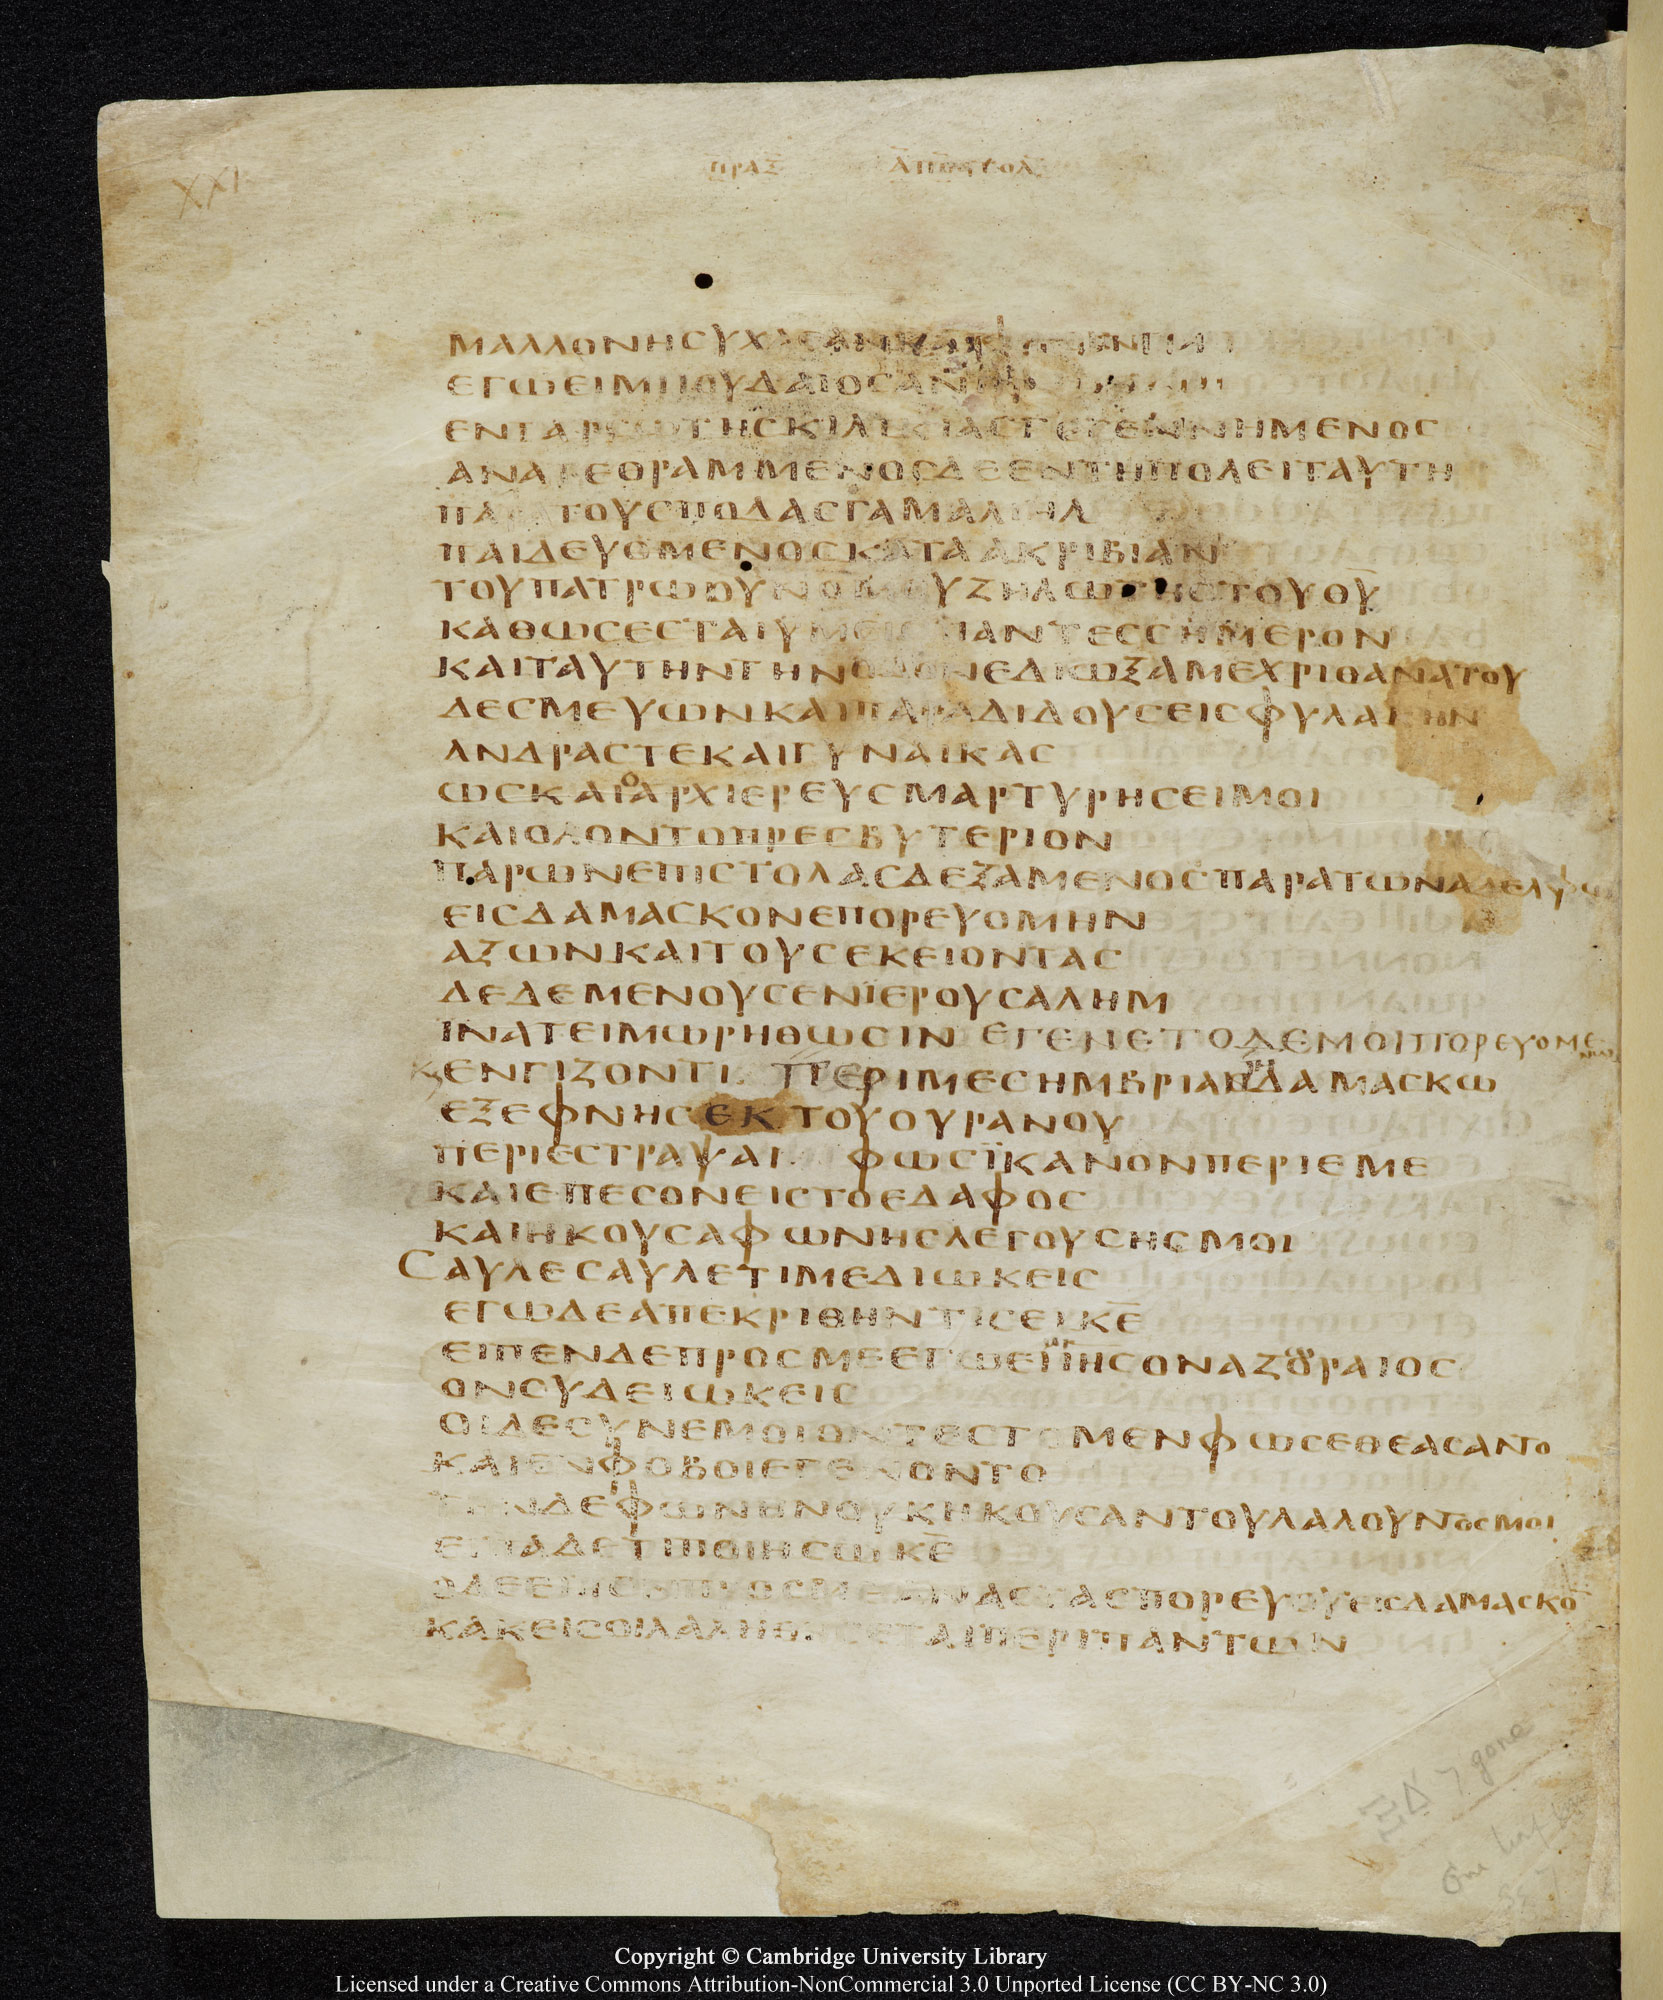 XXI
ΠΡΑΞ ΑΠΟΣΤΟΛ
ΜΑΛΛΟΝΗΣΥΧΑΣΑΝΚΑΙ
ΕΓΩΕΙΜΙΙΟΥΔΑΙΟΣΑΝΗΡ
ΕΝΤΑΡΣΩΤΗΣΚΙΛΙΚΙΑΣΓΕΓΕΝΝΗΜΕΝΟΣ
ΑΝΑΤΕΘΡΑΜΜΕΝΟΣΔΕΕΝΤΗΠΟΛΕΙΤΑΥΤΗ
ΠΑΡΑΤΟΥΣΠΟΔΑΣΓΑΜΑΛΙΗΛ
ΠΑΙΔΕΥΟΜΕΝΟΣΚΑΤΑΑΚΡΙΒΙΑΝ
ΤΟΥΠΑΤΡΩΟΥΝΟΜΟΥΖΗΛΩΤΗΣΤΟΥΘΥ
ΚΑΘΩΣΕΣΤΑΙΥΜΕΙΣΠΑΝΤΕΣΣΗΜΕΡΟΝ
ΚΑΙΤΑΥΤΗΝΤΗΝΟΔΟΝΕΔΙΩΞΑΜΕΧΡΙΘΑΝΑΤΟΥ
ΔΕΣΜΕΥΩΝΚΑΙΠΑΡΑΔΙΔΟΥΣΕΙΣΦΥΛΑΚΗΝ
ΑΝΔΡΑΣΤΕΚΑΙΓΥΝΑΙΚΑΣ
ΩΣΚΑΙΟΑΡΧΙΕΡΕΥΣΜΑΡΤΥΡΗΣΕΙΜΟΙ
ΚΑΙΟΛΟΝΤΟΠΡΕΣΒΥΤΕΡΙΟΝ
ΠΑΡΩΝΕΠΙΣΤΟΛΑΣΔΕΞΑΜΕΝΟΣΠΑΡΑΤΩΝΑΔΕΛΦΩ
ΕΙΣΔΑΜΑΣΚΟΝΕΠΟΡΕΥΟΜΗΝ
ΑΞΩΝΚΑΙΤΟΥΣΕΚΕΙΟΝΤΑΣ
ΔΕΔΕΜΕΝΟΥΣΕΝΪΕΡΟΥΣΑΛΗΜ
ΙΝΑΤΕΙΜΩΡΗΘΩΣΙΝ ΕΓΕΝΕΤΟΔΕΜΟΙΠΟΡΕΥΟΜΕΝΩ
ΚϚΕΝΓΙΖΟΝΤΙ ΠΕΡΙΜΕΣΗΜΒΡΙΑΝΔΑΜΑΣΚΩ
ΕΞΕΦΝΗΣΕΚΤΟΥΟΥΡΑΝΟΥ
ΠΕΡΙΕΣΤΡΑΨΑΙ ΦΩΣΪΚΑΝΟΝΠΕΡΙΕΜΕ
ΚΑΙΕΠΕΣΟΝΕΙΣΤΟΕΔΑΦΟΣ
ΚΑΙΗΚΟΥΣΑΦΩΝΗΣΛΕΓΟΥΣΗΣΜΟΙ
ΣΑΥΛΕΣΑΥΛΕΤΙΜΕΔΙΩΚΕΙΣ
ΕΓΩΔΕΑΠΕΚΡΙΘΗΝΤΙΣΕΙΚΕ
ΕΙΠΕΝΔΕΠΡΟΣΜΕΕΓΩΕΙΜΙΙΗΣΟΝΑΖΟΡΑΙΟΣ
ΟΝΣΥΔΕΙΩΚΕΙΣ
ΟΙΔΕΣΥΝΕΜΟΙΟΝΤΕΣΤΟΜΕΝΦΩΣΕΘΕΑΣΑΝΤΟ
ΚΑΙΕΝΦΟΒΟΙΕΓΕΝΟΝΤΟ
ΤΗΝΔΕΦΩΝΗΝΟΥΚΗΚΟΥΣΑΝΤΟΥΛΑΛΟΥΝΤΟΣΜΟΙ
ΕΙΠΑΔΕΤΙΠΟΙΗΣΩΚΕ
ΟΔΕΕΙΠΕΝΠΡΟΣΜΕΑΝΑΣΤΑΣΠΟΡΕΥΟΥΕΙΣΔΑΜΑΣΚΟ
ΚΑΚΕΙΣΟΙΛΑΛΗΘΗΣΕΤΑΙΠΕΡΙΠΑΝΤΩΝ
ΞΔ 7 gone
one
Copyright © Cambridge University Library
Licensed under a Creative Commons Attribution-NonCommercial 3.0 Unported License (CC BY-NC 3.0)